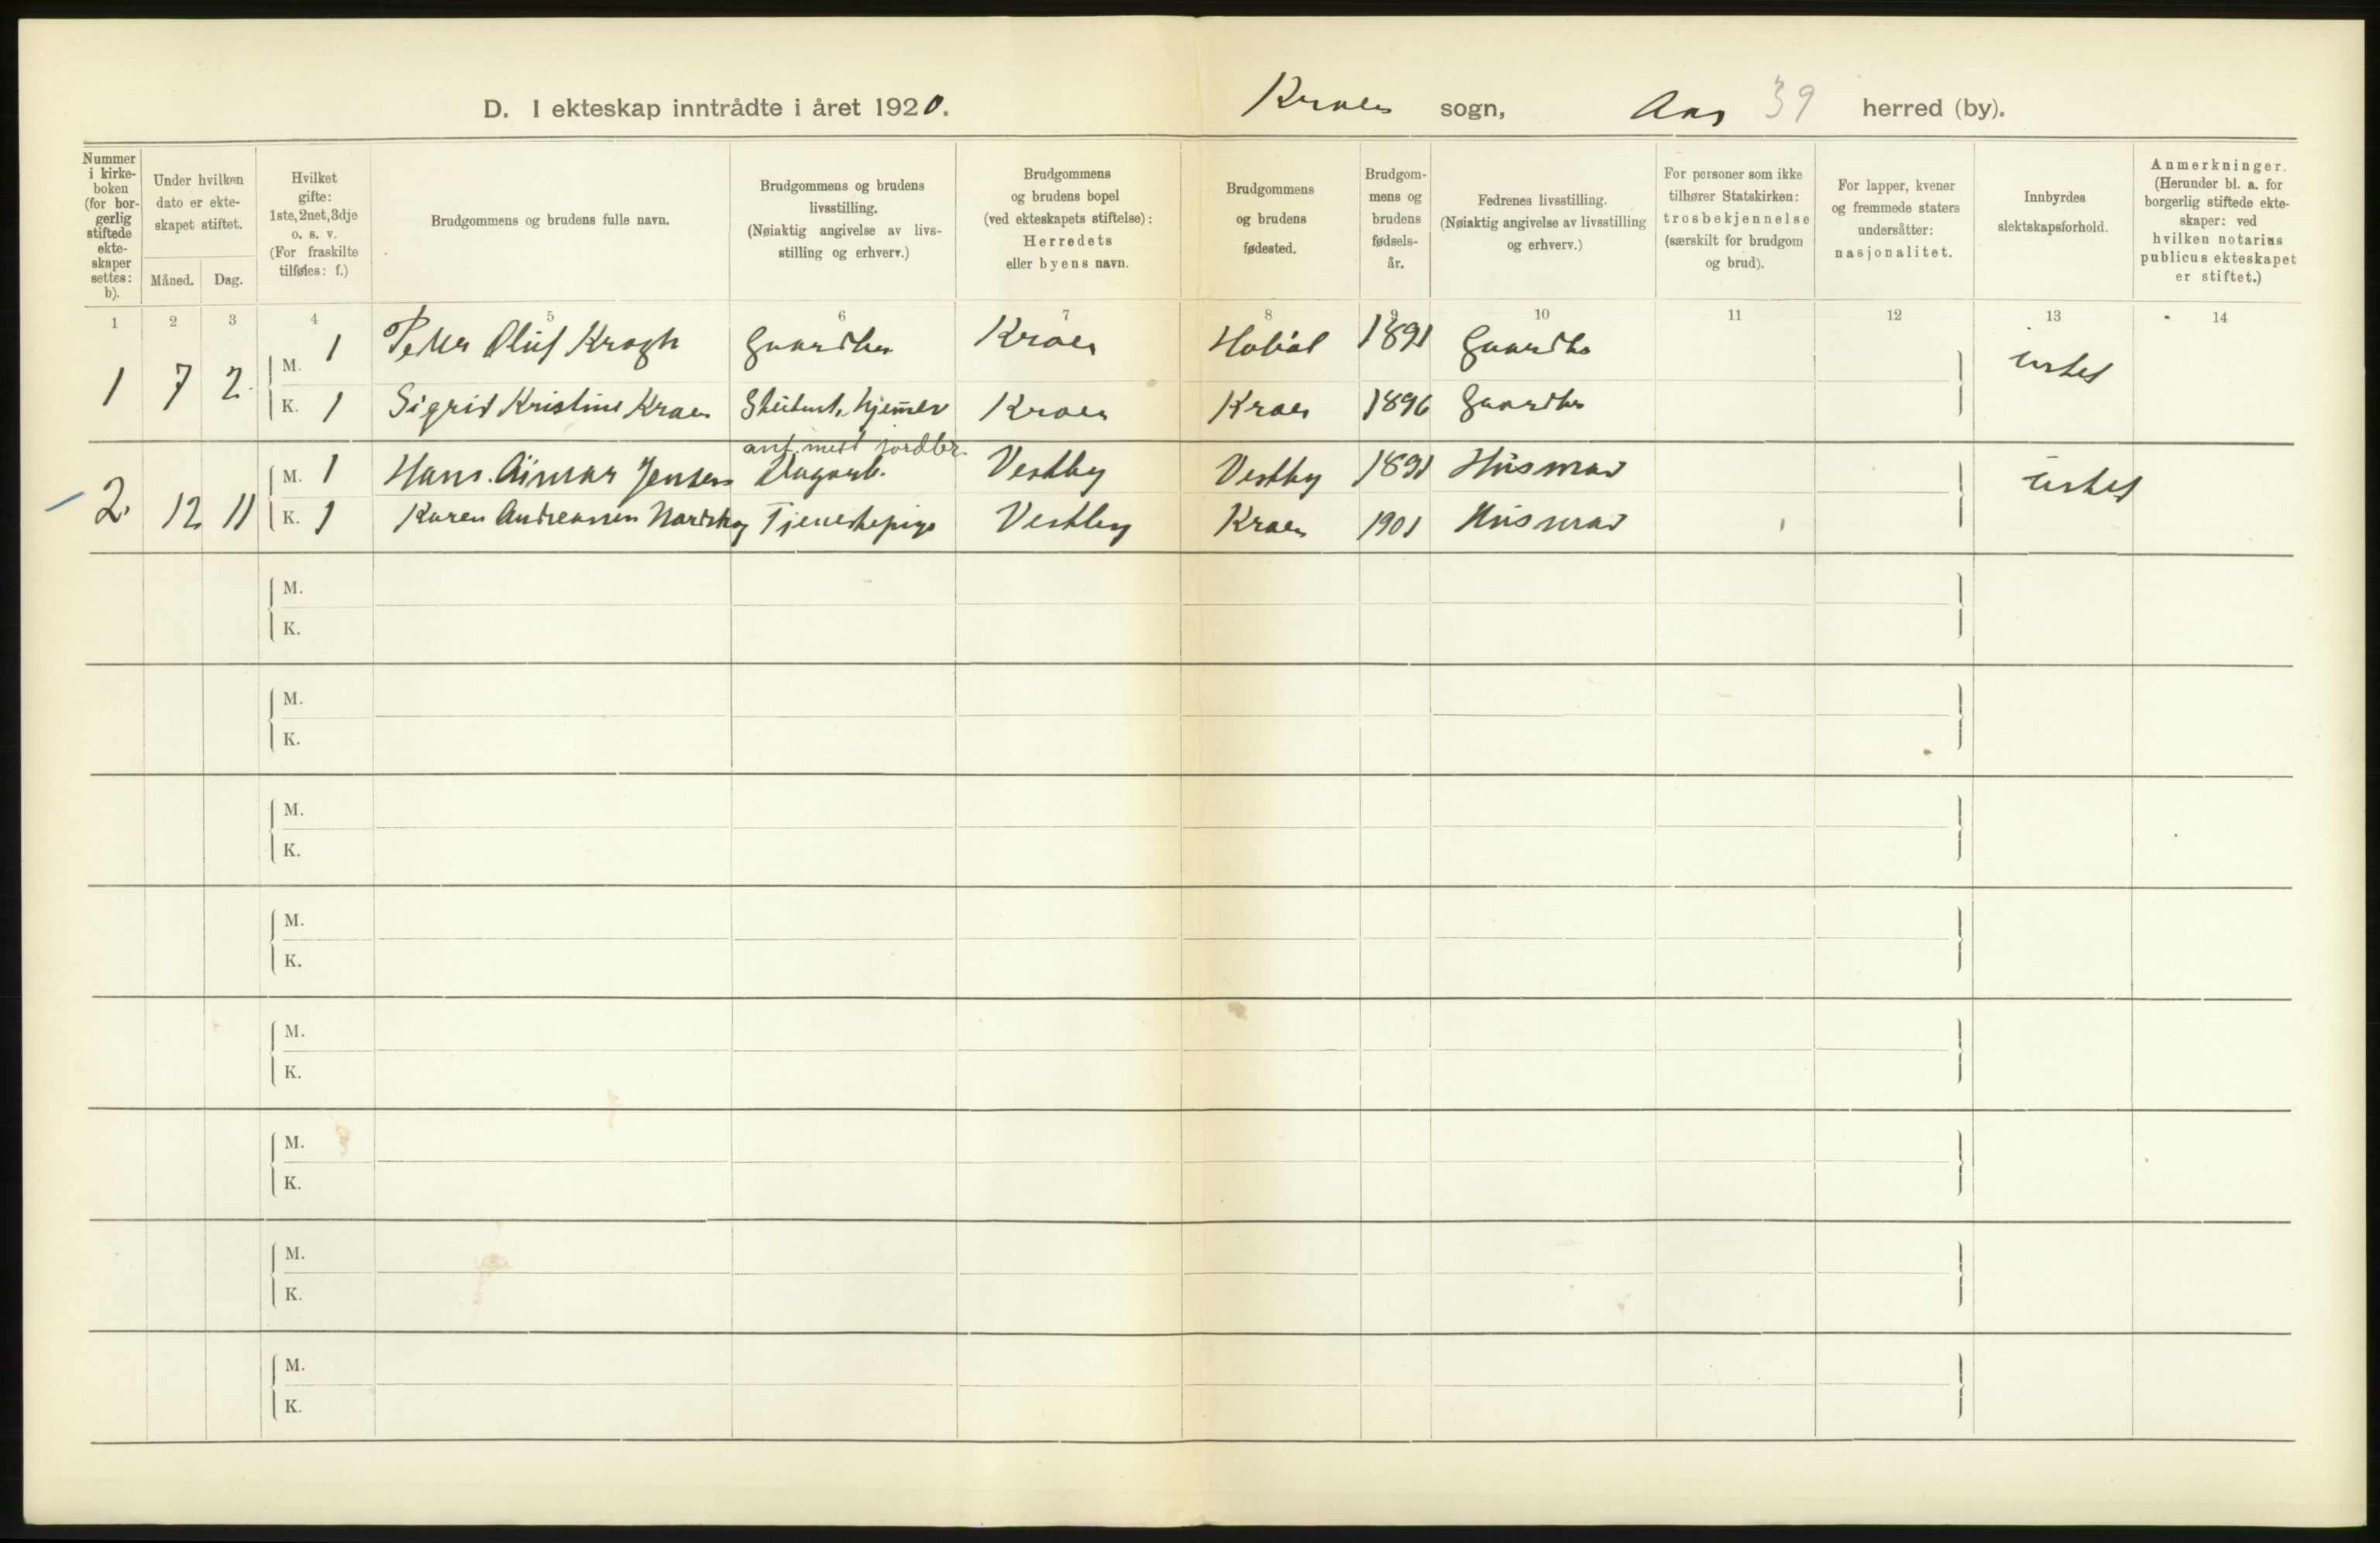 D. I ekteskap inntrådte i året 1920. Kroer sogn, Aas 39 herred (by).
Nummer i kirke-boken (for bor-gerlig stiftede ekte-skaper settes: b).
Under hvilken dato er ekte-skapet stiftet.
Måned. Dag.
Hvilket gifte: 1ste, 2net, 3dje o. s. v. (For fraskilte tilføies: f.)
Brudgommens og brudens fulle navn.
Brudgommens og brudens livsstilling. (Nøiaktig angivelse av livs-stilling og erhverv.)
Brudgommens og brudens bopel (ved ekteskapets stiftelse): Herredets eller byens navn.
Brudgommens og brudens fødested.
Brudgom-mens og brudens fødsels-år.
Fedrenes livsstilling. (Nøiaktig angivelse av livsstilling og erhverv.)
For personer som ikke tilhører Statskirken: trosbekjennelse (særskilt for brudgom og brud).
For lapper, kvener og fremmede staters undersåtter: nasjonalitet.
Innbyrdes slektskapsforhold.
Anmerkninger. (Herunder bl. a. for borgerlig stiftede ekte-skaper: ved hvilken notarius publicus ekteskapet er stiftet.)
1 2 3 4 5 6 7 8 9 10 11 12 13 14
1 7 2 M. 1 Petter Oluf Krogh Gaardbr Kroer Hobøl 1891 Gaardbr intet
K. 1 Sigrid Kristine Kroer Student, hjemmev Kroer Kroer 1896 Gaardbr
ant. med jordbr.
2. 12 11 M. 1 Hans Aimar Jensen Dagarb. Vestby Vestby 1891 Husmand intet
K. 1 Karen Andreassen Nordskog Tjenestepige Vestby Kroer 1901 Husmand
M.
K.
M.
K.
M.
K.
M.
K.
M.
K.
M.
K.
M.
K.
M.
K.